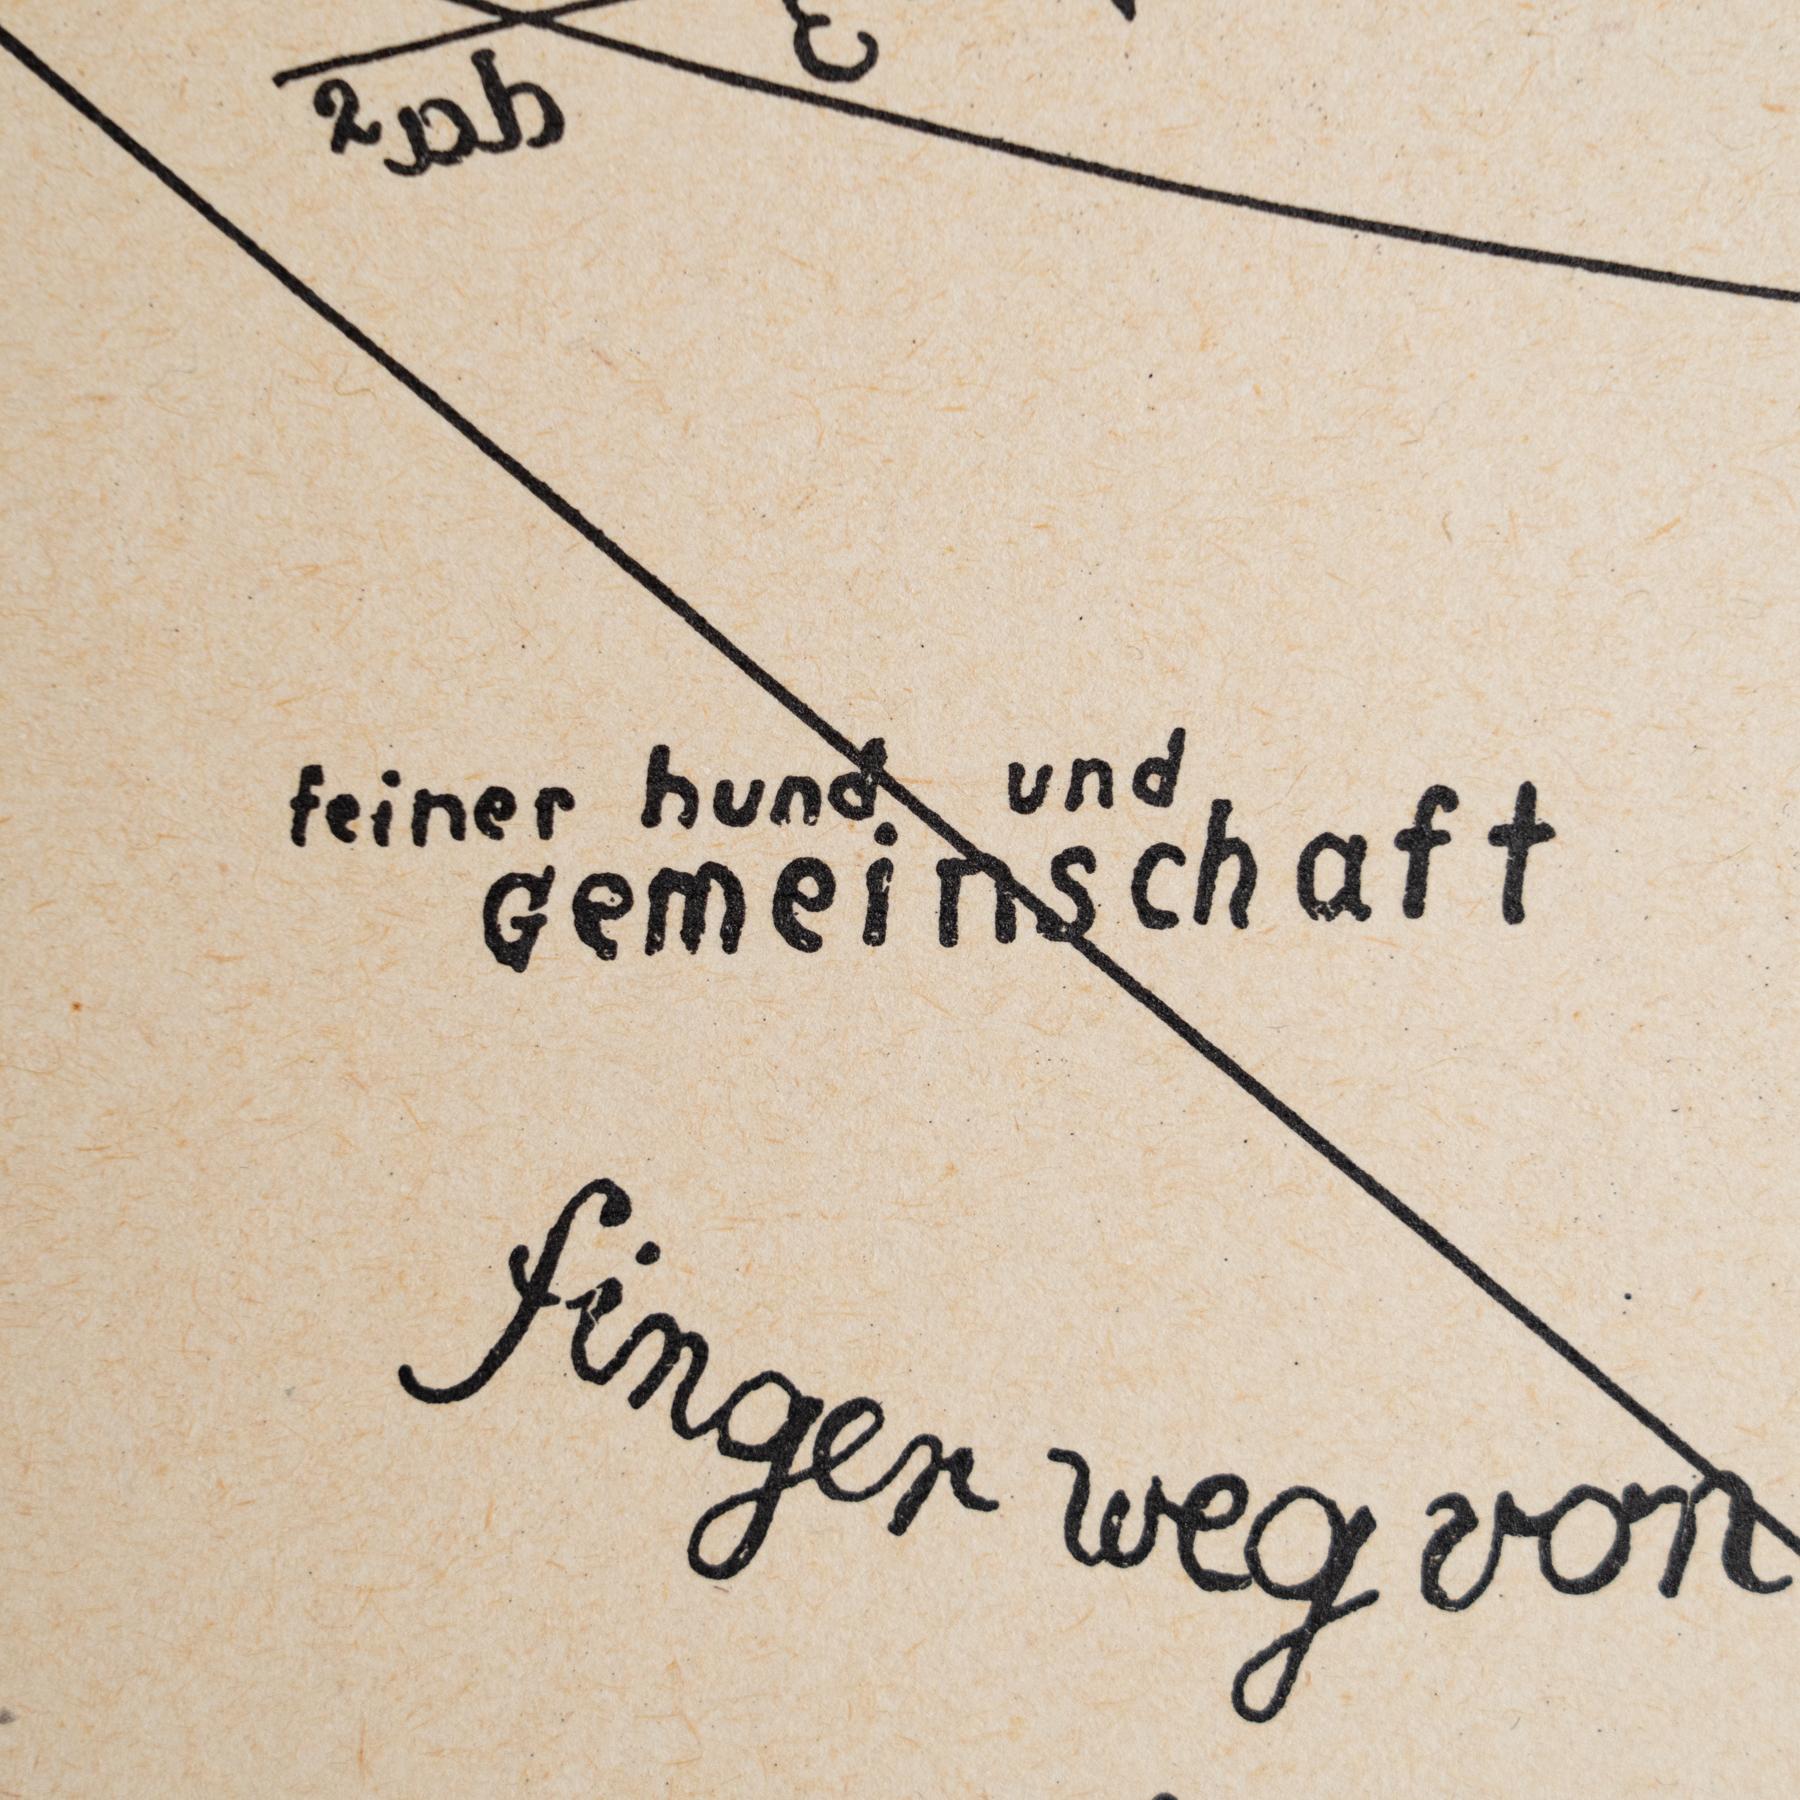 feiner hund und
Gemeinschaft
finger weg von